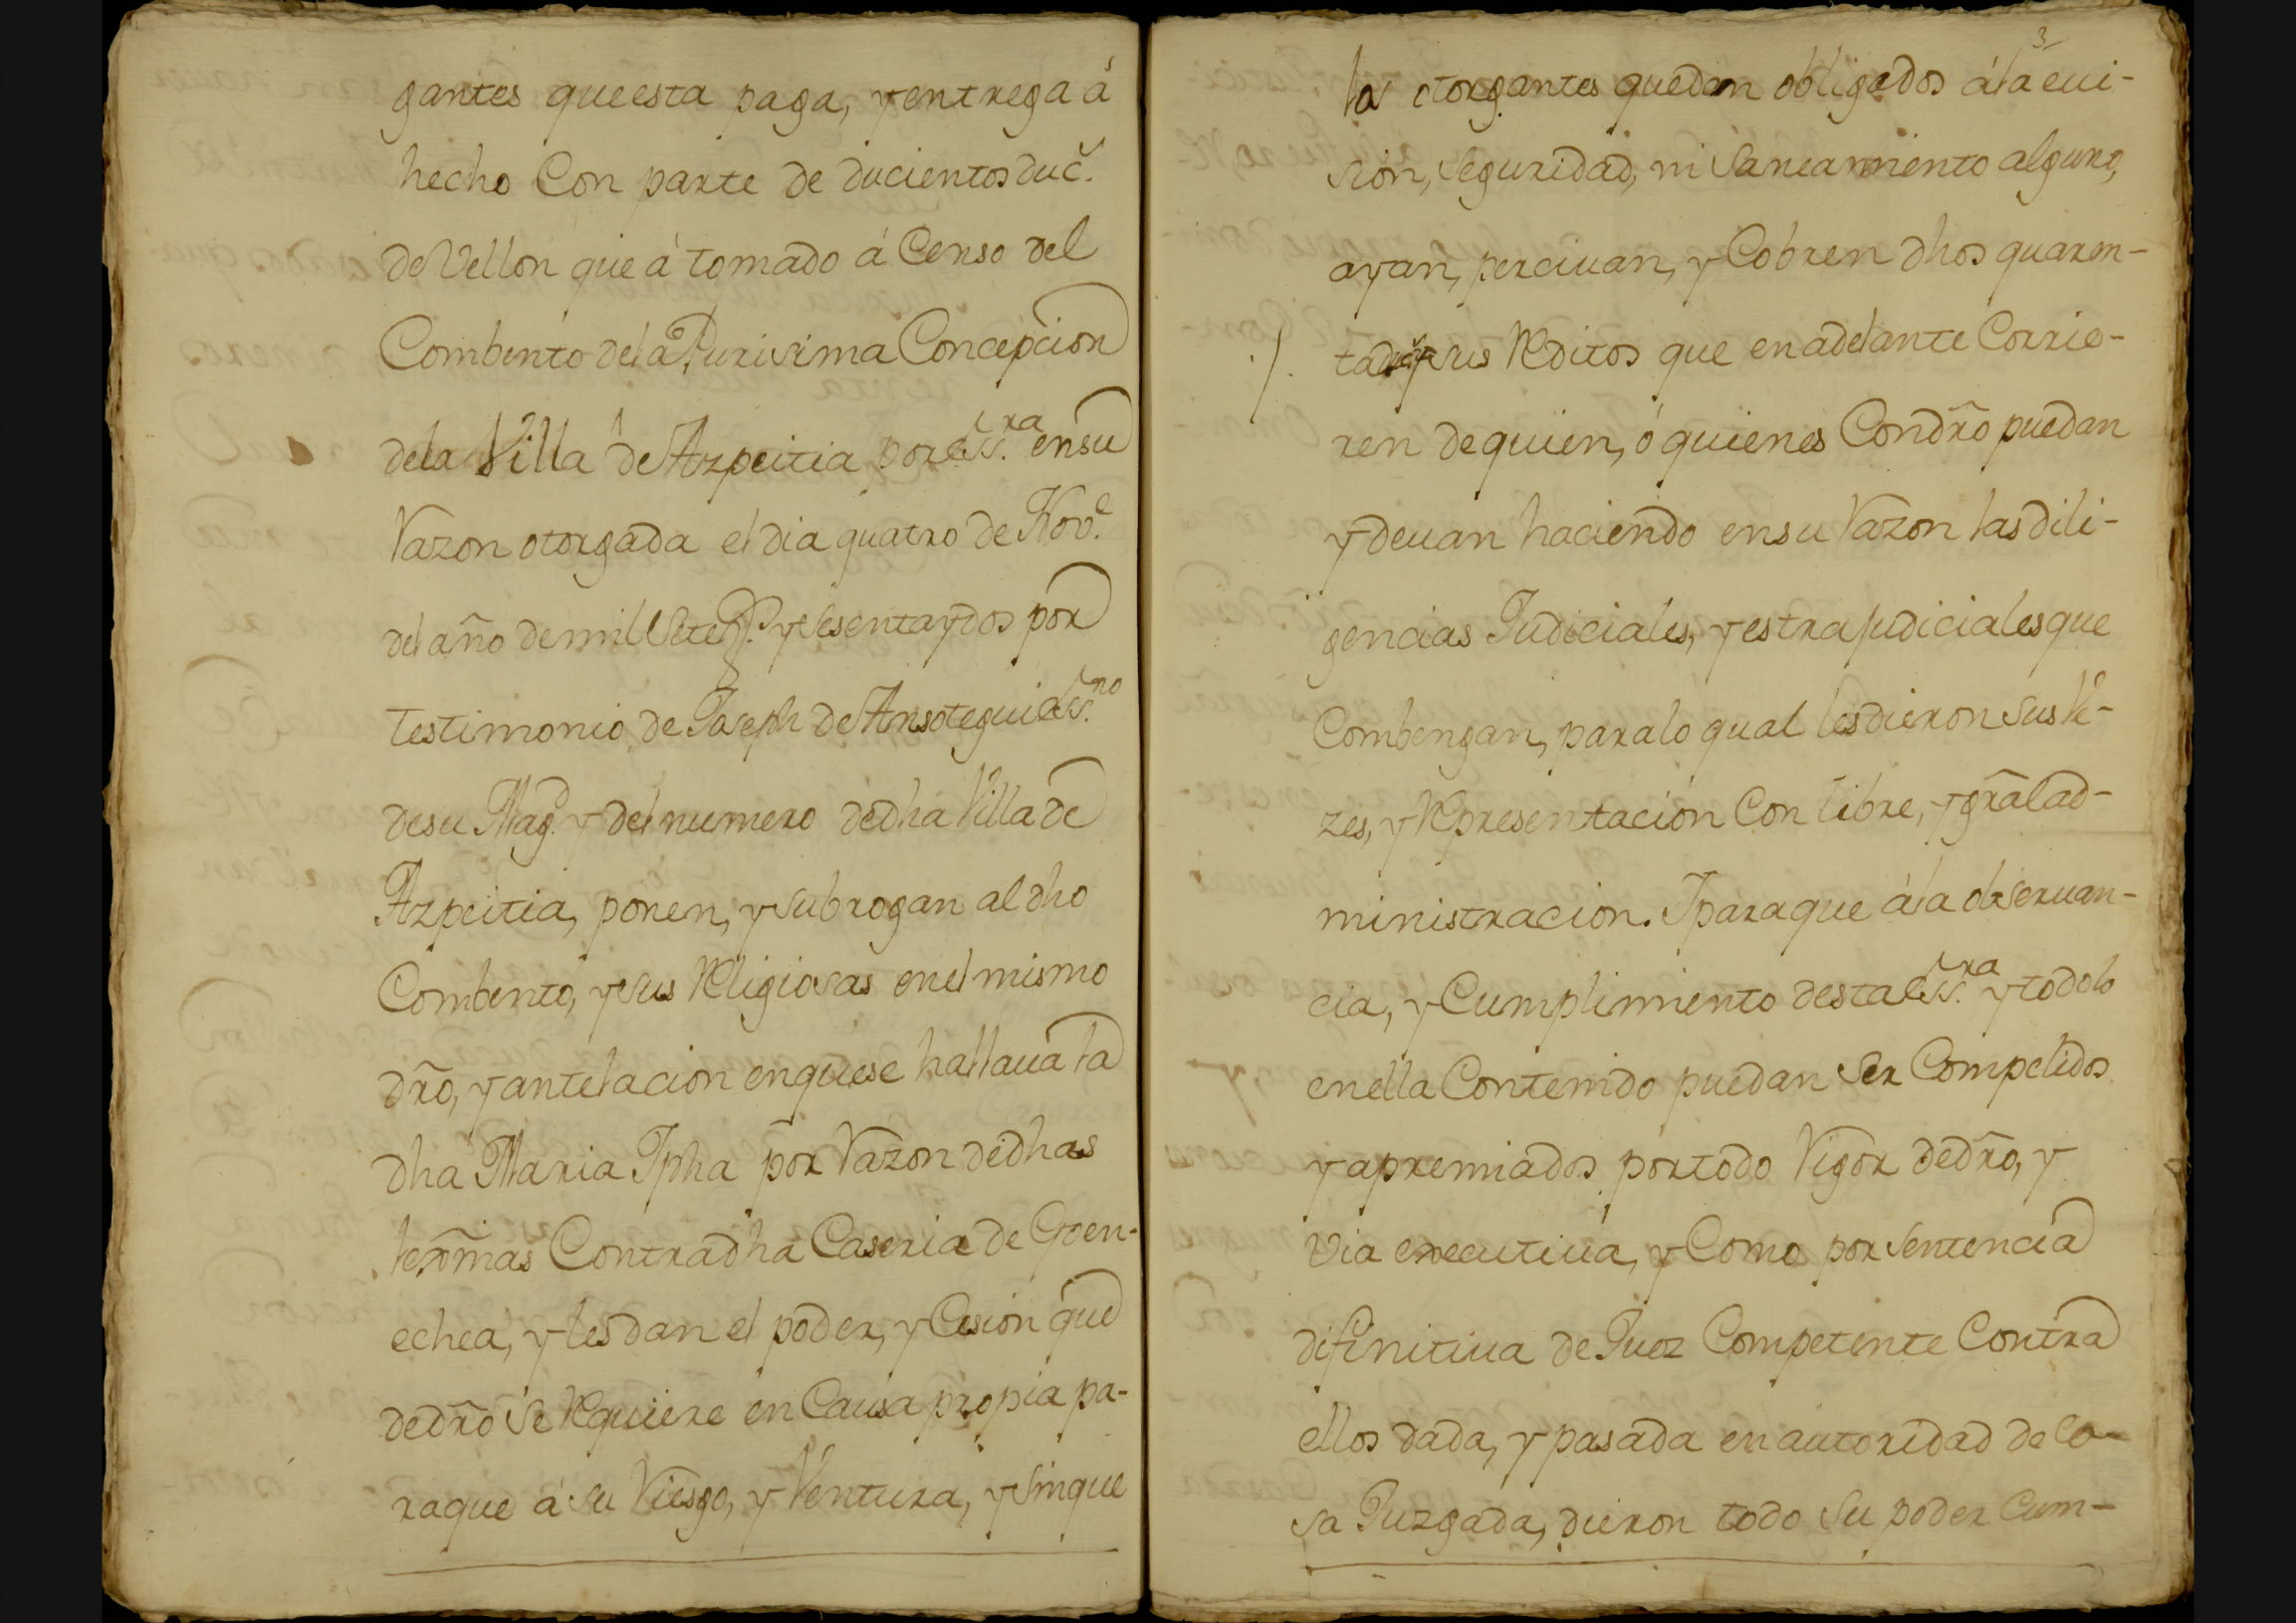 gantes que esta paga, y entrega á
hecho Con parte de ducientos duc.^s
de Vellon que á tomado á Censo del
Combento de la Purisima Concepcion
de la Villa de Azpeitia por ess.^ra en su
Razon otorgada el dia quatro de Nov.^e
del año de mill Sete^s. y Sesenta y dos por
testimonio de Joseph de Ansotegui ess.^no
de su Mag.^d y del numero de dha Villa de
Azpeitia, ponen, y subrogan al dho
Combento, y sus Religiosas en el mismo
dr̃o, y antelacion en que se hallaua la
dha Maria Jpha por Razon de dhas
lexm̃as Contra dha Caseria de Goen-
echea, y les dan el poder, y Cesion que
de dr̃o se Requiere en Causa propia pa-
ra que á su Riesgo, y Ventura, y sin que
3
los otorgantes quedan obligados á la eui-
sion, seguridad, ni Saneamiento alguno,
ayan, perciuan, y Cobren dhos quaren-
ta duc^s y sus Reditos que en adelante Corrie-
ren de quien, ó quienes Con dr̃o puedan
y deuan haciendo en su Razon las dili-
gencias Judiciales, y estrajudiciales que
Combengan, para lo qual les dieron sus Ve-
zes, y Representacion Con libre, y gr̃al ad-
ministracion. Y para que á la obseruan-
cia, y Cumplimiento desta ess.^ra y todo lo
en ella Contenido puedan ser Compelidos
y apremiados por todo Rigor de dr̃o, y
via executiua, y Como por sentencia
difinitiua de Juez Competente Contra
ellos dada, y pasada en autoridad de Co-
sa Juzgada, dieron todo su poder Cum-